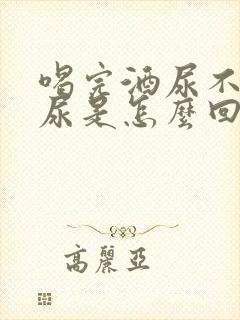 喝完酒尿不
尿是怎麼回
高麗亞